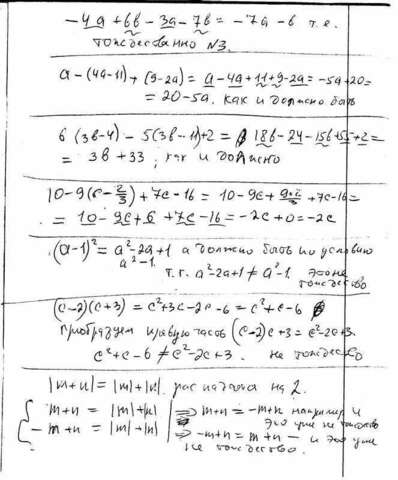 -4a+6b-3a-7b = -7a-b т.е.
тождественно №3.
a-(4a-11)+(9-2a) = a-4a+11+9-2a = -5a+20=
= 20-5a. как и должно быть
6(3b-4)-5(3b-11)+2 = 18b-24-15b+55+2=
= 3b+33; как и должно
10-9(c-2/3)+7c-16 = 10-9c+9·2/3+7c-16=
= 10-9c+6+7c-16 = -2c+0 = -2c
(a-1)² = a²-2a+1 а должно быть по условию
a²-1.
т.г. a²-2a+1 ≠ a²-1 это не
тождество
(c-2)(c+3) = c²+3c-2c-6 = c²+c-6
правую часть (c-2)c+3 = c²-2c+3.
c²+c-6 ≠ c²-2c+3. не тождество
|m+n| = |m|+|n|. на 2.
m+n = |m|+|n| ⇒ m+n = -m+n например и
это уже не тождество
-m+n = |m|+|n| ⇒ -m+n = m+n - и это уже
не тождество.